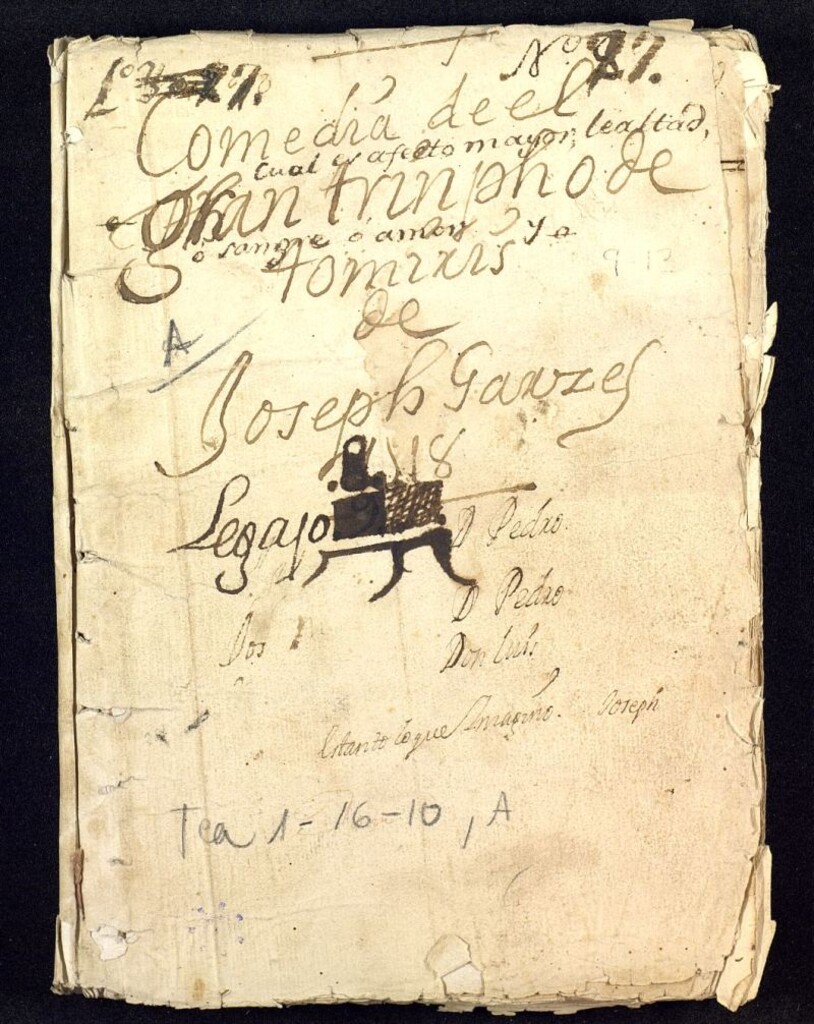 Nº 27.
Comedia de el
Cual es afecto mayor, lealtad,
Gran trinpho de
o sangre o amor y a
tomiris
de
A
Joseph Garzes
18
Legajo
D Pedro.
D Pedro
Dos
Don Luis
Es tanto lo que Imagino. Joseph
Tea 1-16-10, A